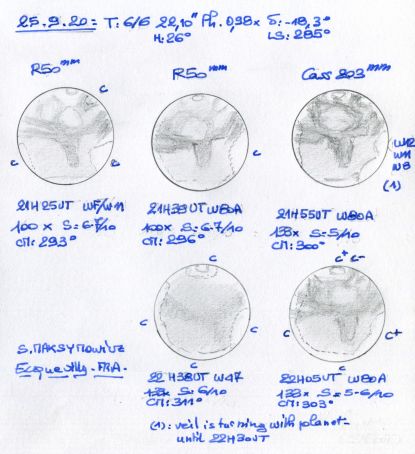 25.9.20 = T: 6/6 22,10" Ph. 0,98x δ: -18,3°
H: 26° LS: 285°
R50mm R50mm Cass 203mm
c
c c c
W12
W11
W8
(1)
21H25UT WF/W11 21H38UT W80A 21H55UT W80A
100x S=6-7/10 100x S=6-7/10 138x S=5/10
CM: 293° CM: 296° CM: 300°
c+ c-
c c c c+
c c
S. MAKSYMOWICZ
Ecquevilly - FRA.
22H38UT W47 22H05UT W80A
138x S=6/10 138x S=5-6/10
CM: 311° CM: 303°
(1): veil is turning with planet
until 22H30UT